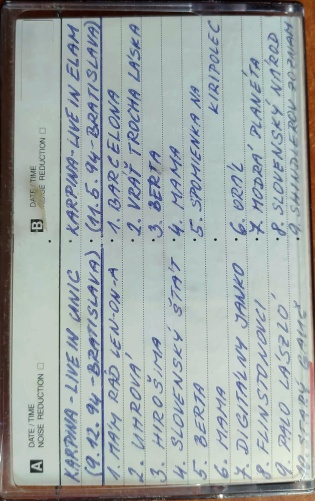 A DATE / TIME
NOISE REDUCTION
KARPINA-LIVE IN UNIC
(9.12.94-BRATISLAVA)
1. RÁD LEN-ON-A
2. UHROVÁ
3. HIROŠIMA
4. SLOVENSKÝ ŠTÁT
5. BERTA
6. MAMA
7. DIGITALNY JANKO
8. FLINSTONOVCI
9. PALO LÁSZLÓ
10.
B DATE / TIME
NOISE REDUCTION
KARPINA-LIVE IN ELAM
(11.5.94-BRATISLAVA)
1. BARCELONA
2. VRÁŤ TROCHA LÁSKA
3. BERTA
4. MAMA
5. SPOMIENKA NA
KIRIPOLEC
6. ORÁL
7. MODRÁ PLANÉTA
8. SLOVENSKÝ NÁROD
9. SHINDLEROV ZOZNAM